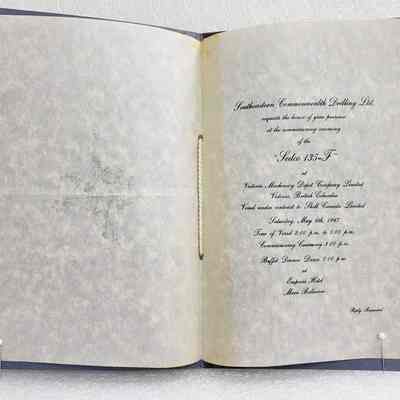 Southeastern Commonwealth Drilling Ltd.
requests the honor of your presence
at the commissioning ceremony
of the
"Sedco 135-F"
at
Victoria Machinery Depot Company Limited
Victoria, British Columbia
Vessel under contract to Shell Canada Limited
Saturday, May 6th, 1967
Tour of Vessel 2:00 p.m. to 5:00 p.m.
Commissioning Ceremony 3:00 p.m.
Buffet Dinner Dance 7:30 p.m.
at
Empress Hotel
Main Ballroom
Reply Requested